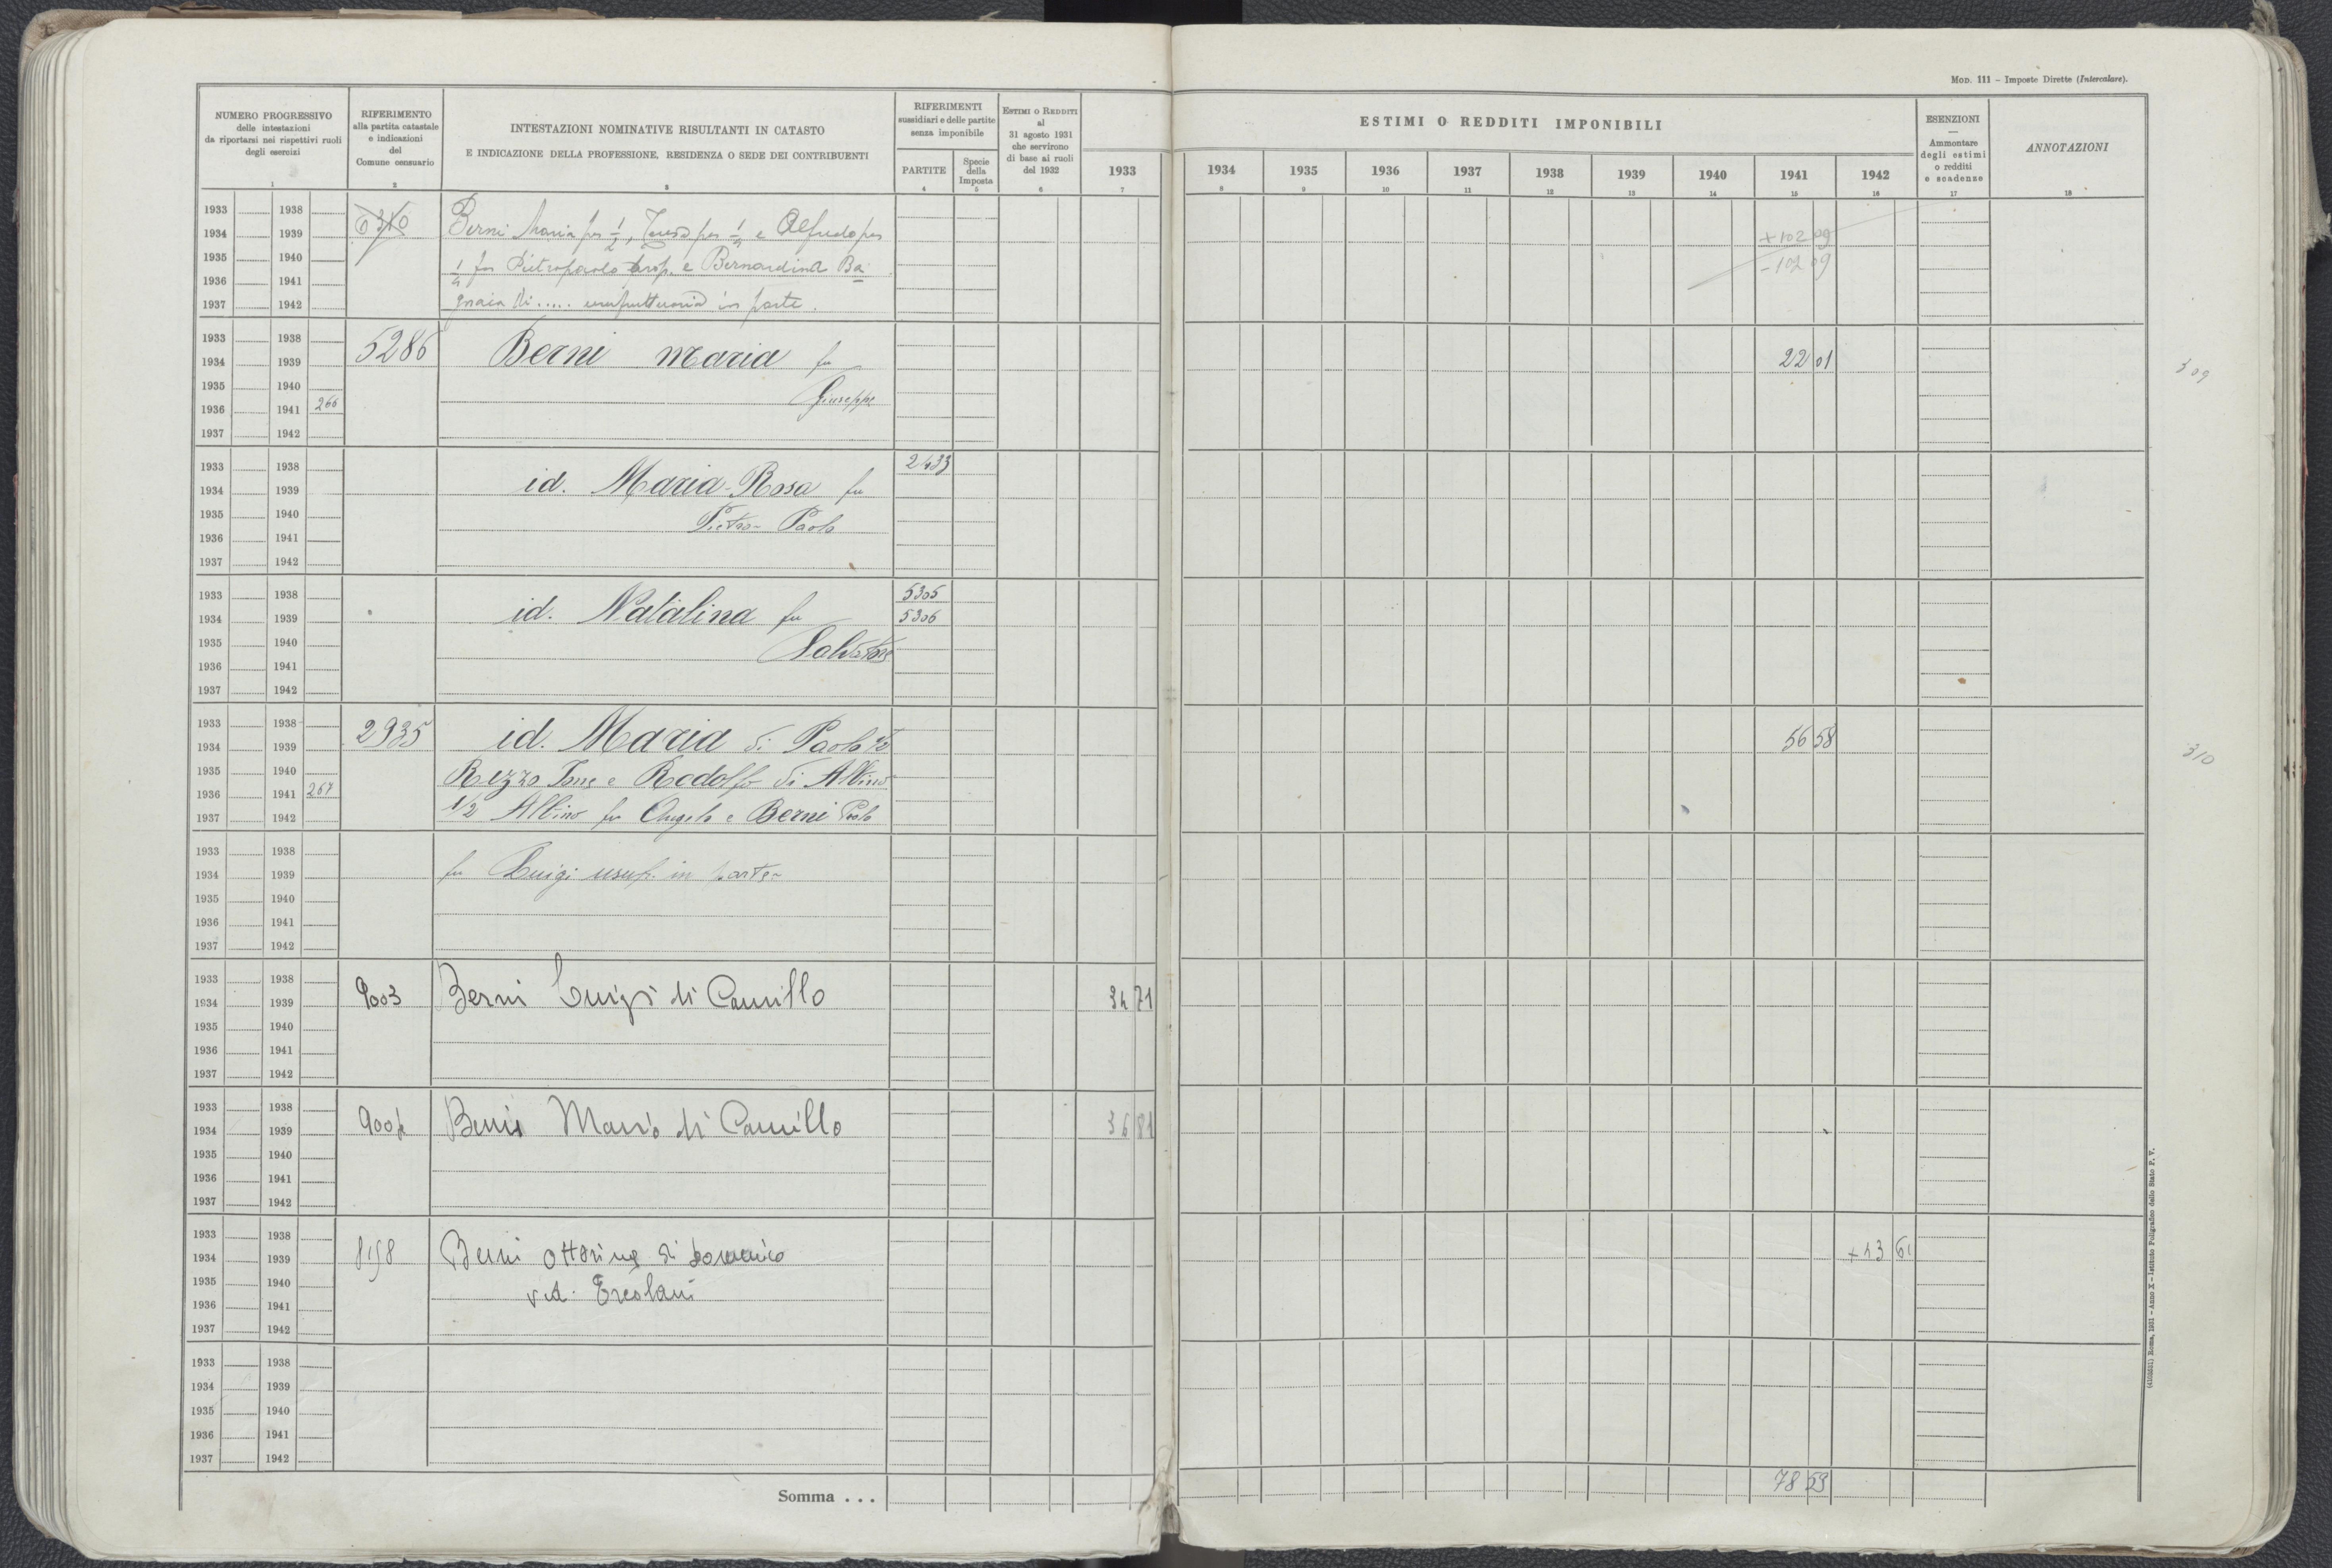 MOD. 111 – Imposte Dirette (Intercalare).
NUMERO PROGRESSIVO
delle intestazioni
da riportarsi nei rispettivi ruoli
degli esercizi
1
RIFERIMENTO
alla partita catastale
e indicazioni
del
Comune censuario
2
INTESTAZIONI NOMINATIVE RISULTANTI IN CATASTO
E INDICAZIONE DELLA PROFESSIONE, RESIDENZA O SEDE DEI CONTRIBUENTI
3
RIFERIMENTI
sussidiari e delle partite
senza imponibile
PARTITE
4
Specie
della
Imposta
5
ESTIMI O REDDITI
al
31 agosto 1931
che servirono
di base ai ruoli
del 1932
6
ESTIMI O REDDITI IMPONIBILI
1933 1934 1935 1936 1937 1938 1939 1940 1941 1942
7 8 9 10 11 12 13 14 15 16
ESENZIONI
—
Ammontare
degli estimi
o redditi
e scadenze
17
ANNOTAZIONI
18
1933 1938
1934 1939
1935 1940
1936 1941
1937 1942
Berni Maria per 1/2, Teresa per 1/4 e Alfredo per
1/4 fu Pietropaolo prop. e Bernardina Ba
gnaia di ..... usufruttuaria in parte.
+102 09
-102 09
1933 1938
1934 1939
1935 1940
1936 1941 266
1937 1942
5286 Berni Maria fu
Giuseppe
22 01
309
1933 1938
1934 1939
1935 1940
1936 1941
1937 1942
id. Maria-Rosa fu
Pietro-Paolo
2433
1933 1938
1934 1939
1935 1940
1936 1941
1937 1942
id. Natalina fu
Salvatore
5305
5306
1933 1938
1934 1939
1935 1940
1936 1941 267
1937 1942
2935 id. Maria di Paolo 1/2
Rezzo e Rodolfo di Albino
1/2 Albino fu Angelo e Berni Paolo
56 58
310
1933 1938
1934 1939
1935 1940
1936 1941
1937 1942
fu Luigi usuf. in parte
1933 1938
1934 1939
1935 1940
1936 1941
1937 1942
9003 Berni Luigi di Camillo
34 71
1933 1938
1934 1939
1935 1940
1936 1941
1937 1942
9004 Berni Mario di Camillo
36 81
1933 1938
1934 1939
1935 1940
1936 1941
1937 1942
8198 Berni Ottorina di Domenico
v.d. Ercolani
+43 61
1933 1938
1934 1939
1935 1940
1936 1941
1937 1942
Somma . . .
78 59
(4103651) Roma, 1931 – Anno X – Istituto Poligrafico dello Stato P. V.